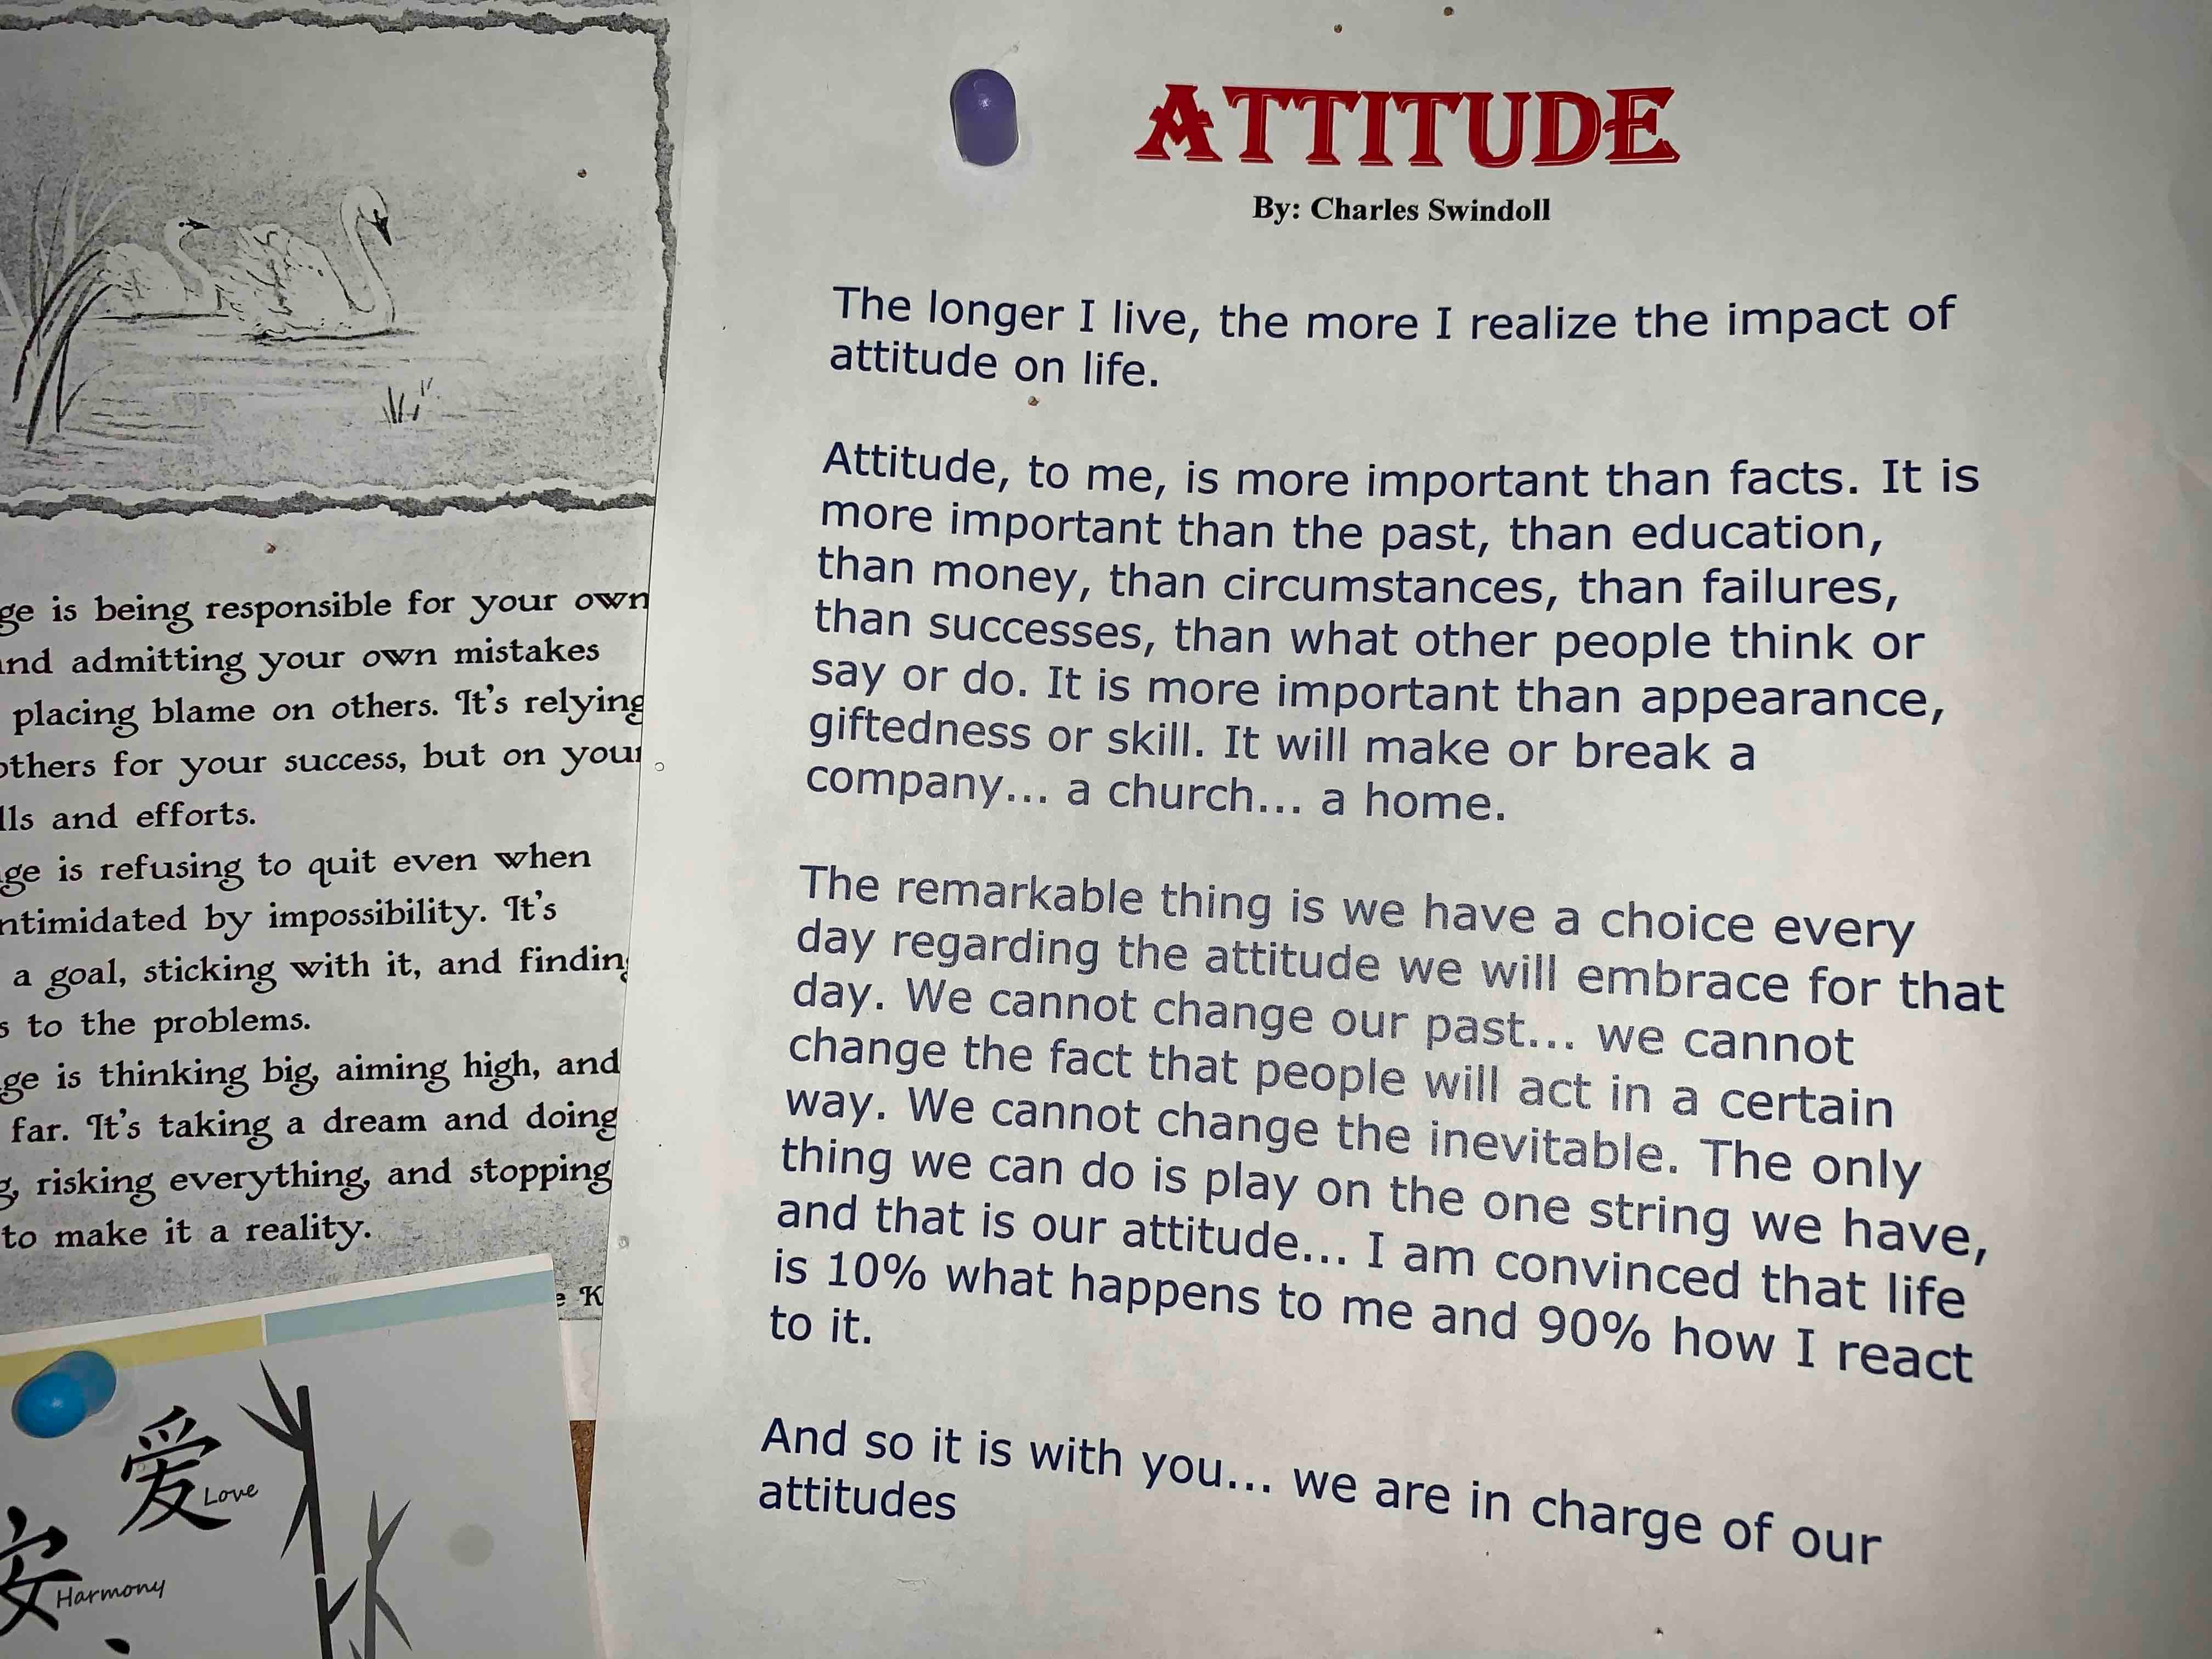 ge is being responsible for your own
and admitting your own mistakes
placing blame on others. It's relying
others for your success, but on your
lls and efforts.
ge is refusing to quit even when
ntimidated by impossibility. It's
a goal, sticking with it, and finding
s to the problems.
ge is thinking big, aiming high, and
far. It's taking a dream and doing
g, risking everything, and stopping
to make it a reality.
e K
爱
Love
安
Harmony
ATTITUDE
By: Charles Swindoll
The longer I live, the more I realize the impact of
attitude on life.
Attitude, to me, is more important than facts. It is
more important than the past, than education,
than money, than circumstances, than failures,
than successes, than what other people think or
say or do. It is more important than appearance,
giftedness or skill. It will make or break a
company... a church... a home.
The remarkable thing is we have a choice every
day regarding the attitude we will embrace for that
day. We cannot change our past... we cannot
change the fact that people will act in a certain
way. We cannot change the inevitable. The only
thing we can do is play on the one string we have,
and that is our attitude... I am convinced that life
is 10% what happens to me and 90% how I react
to it.
And so it is with you... we are in charge of our
attitudes